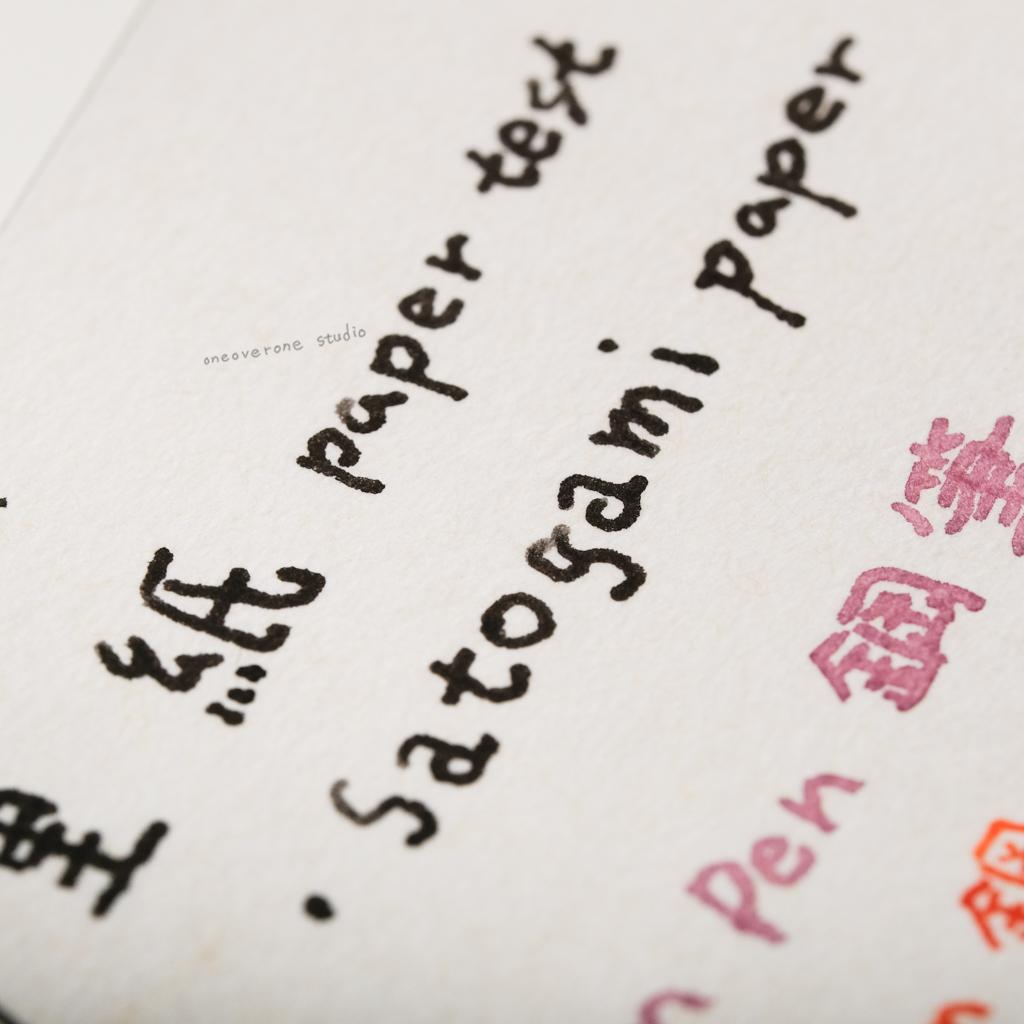 里紙 paper test
• satogami paper
oneoverone studio
鋼筆
Pen